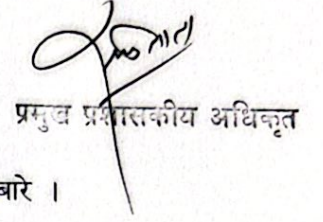 प्रमुख प्रशासकीय अधिकृत
बारे ।